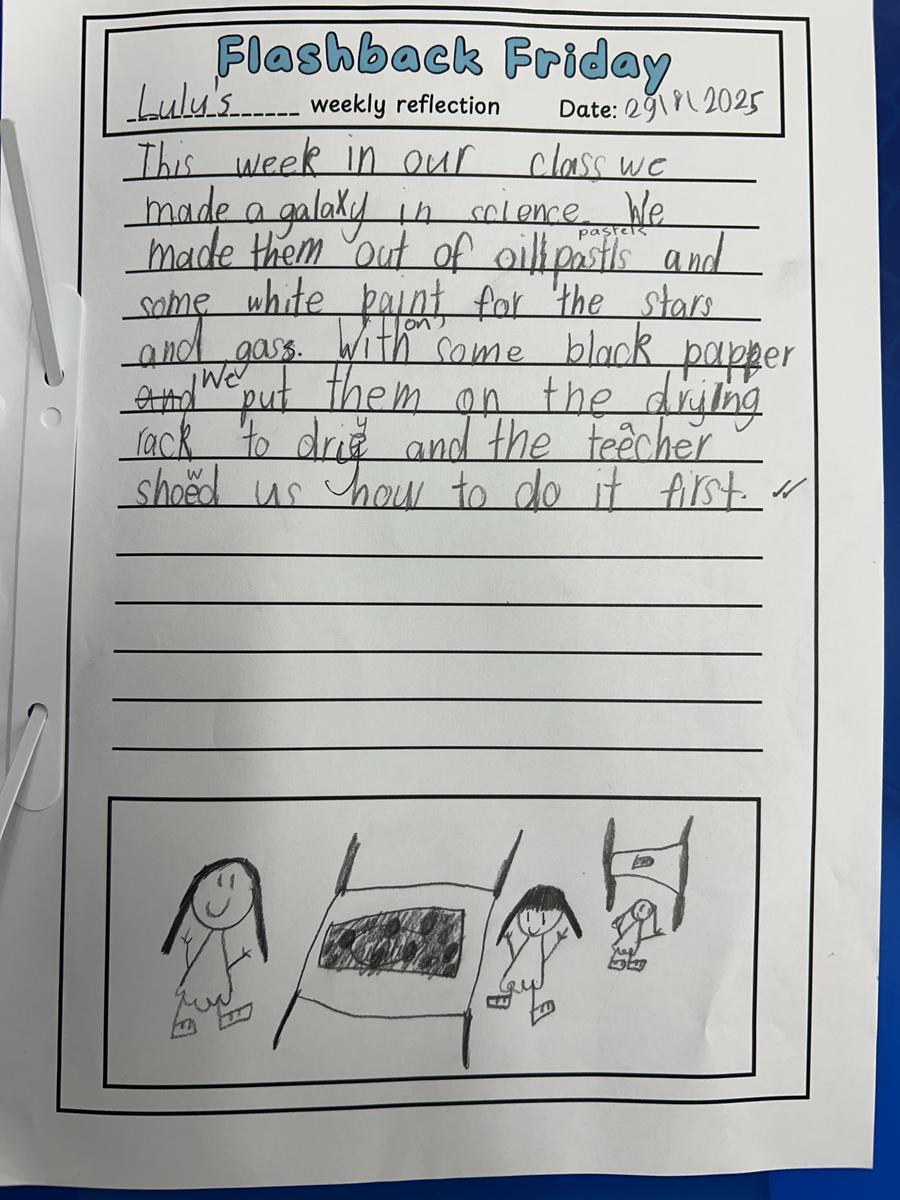 Flashback Friday
Lulu's weekly reflection Date: 29\8\2025
This week in our class we
made a galaxy in science. We
pastels
made them out of oill pastls and
some white paint for the stars
and gass. With on some black papper
and We put them on the drying
rack to driy and the teacher
w
shoed us how to do it first.